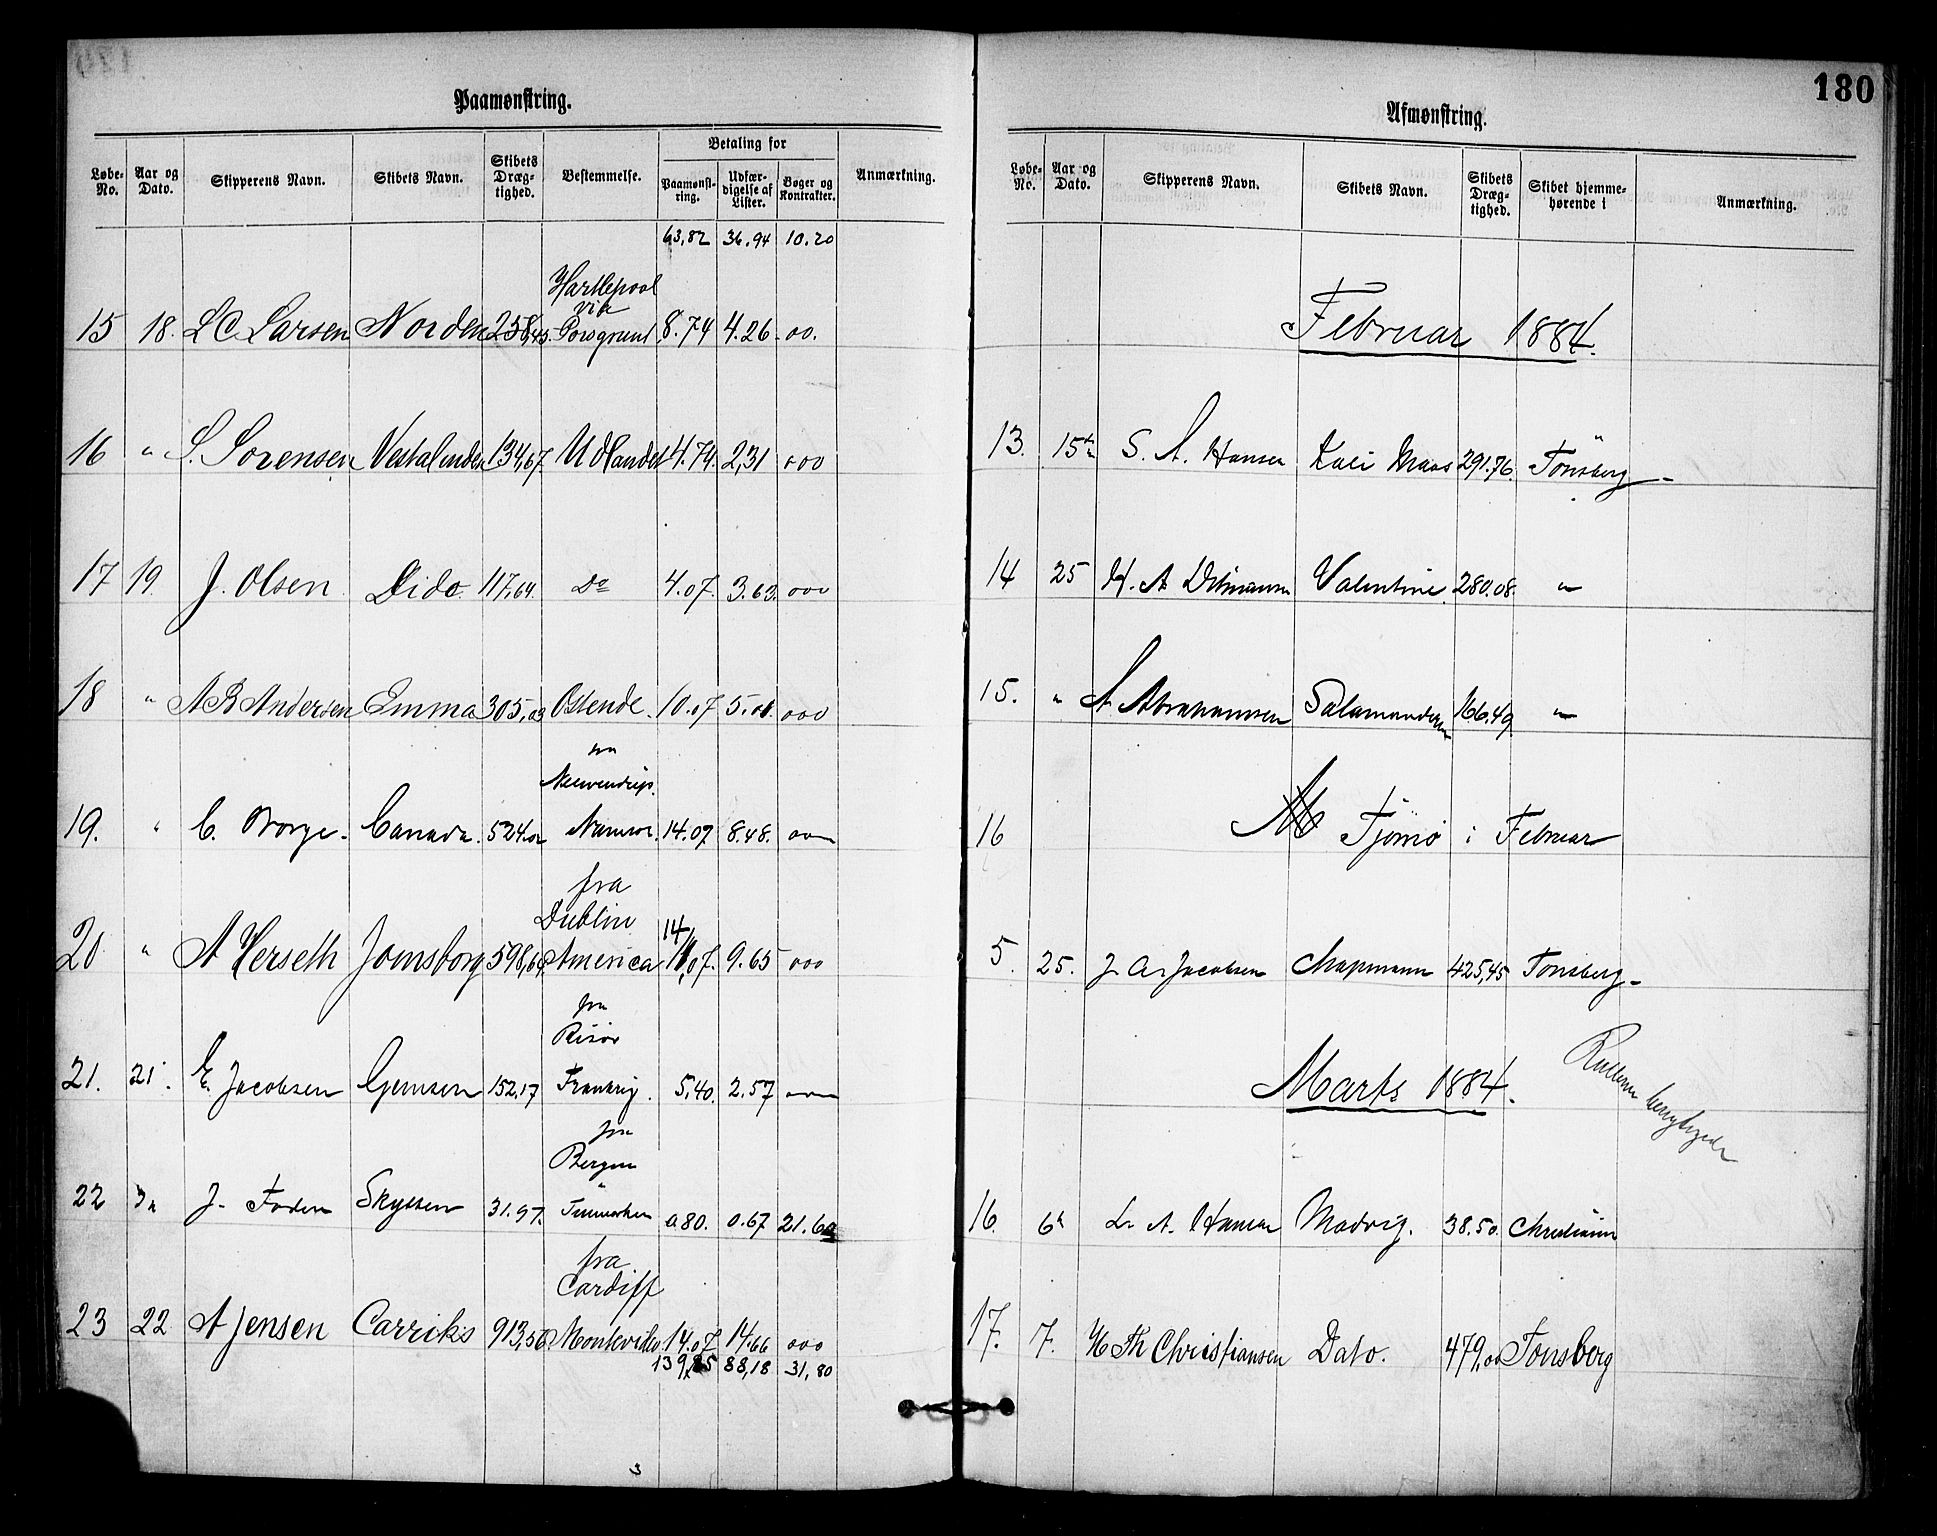 Paamønstring.
Løbe-No. Aar og Dato. Skipperens Navn. Skibets Navn. Skibets Dræg-tighed. Bestemmelse. Betaling for Paamønst-ring. Udfær-digelse af Lister. Bøger og Kontrakter. Anmærkning.
63,82 36.94 10.20
Hartlepool
via
15 18. L C. Larsen Norden 238,43. Porsgrund 8.74 4.26 00.
16 " S. Sorensen Vestalinden 134,67. Udlandet 4.74. 2,31 000
17 19. J. Olsen Dido. 117,64. Do 4.07. 3.63. 000
18 " A B Andersen Emma 305,03 Ostende. 10.07 5.01. 000
19. " C. Borge. Canada. 524.02 14.07 8.48. 000
fra
Dublin
14
20 " A Herseth Jomsborg 598,69 America 11,07. 9.65 000
fra
Risør
21. 21. E. Jacobsen Gemsen 152,17 Frankrig. 5,40. 2.57 000
fra
Bergen
22 " J. Foden Skytten 31.97. Finmarken 0.80. 0.67 21.60
fra
Cardiff
23 22 A Jensen Carriks 913,56 Montevideo 14.07. 14.66 000
139,85 88,18 31,80
3
180
Afmønstring.
Løbe-No. Aar og Dato. Skipperens Navn. Skibets Navn. Skibets Dræg-tighed. Skibet hjemme-hørende i Anmærkning.
Februar 1884.
13. 15de S. A. Hansen Kali Maas 291.76. Tönsberg
14 25 H. A Ditmansen Valentine 280.08. "
15. " A. Abrahamsen Salamanderen 166.49 "
16 Tjømø i Februar
5. 25. J. A. Jacobsen Chapmann 425,45 Tonsberg
Marts 1884.
Rullen
16. 6te L. A. Hansen Madvig. 38.50. Christiania
17. 7. H Th Christiansen Dato. 479,00 Tonsberg